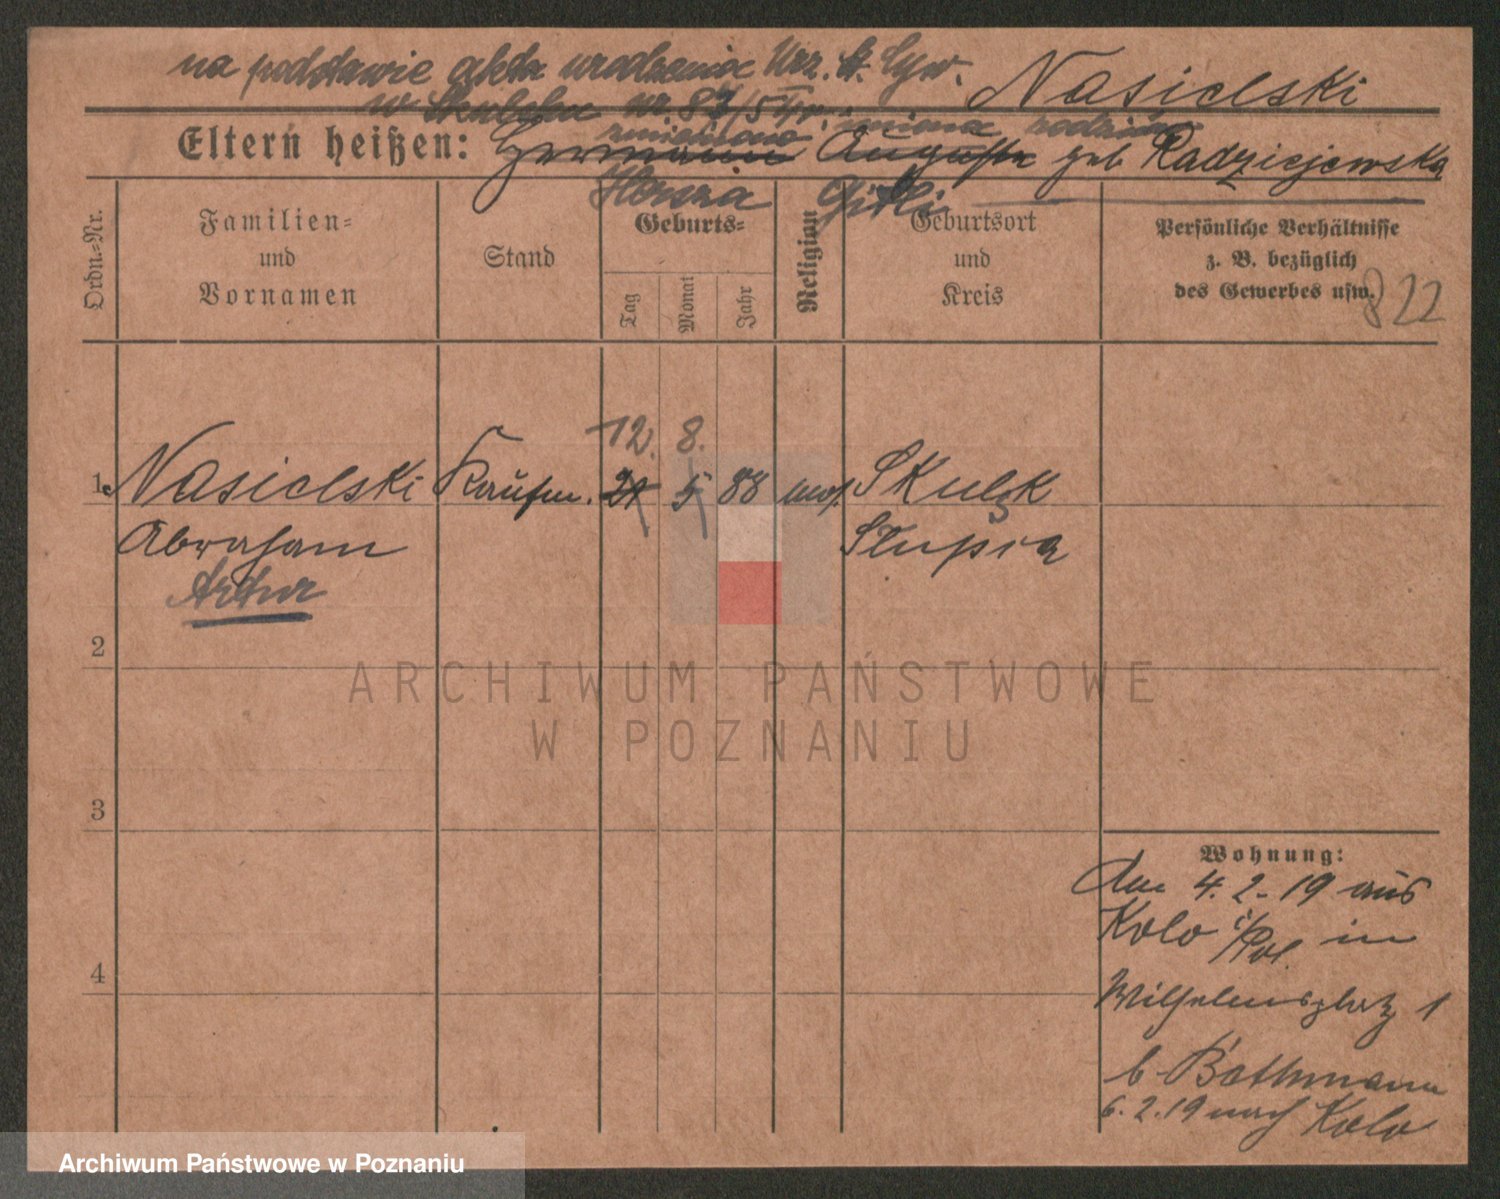 na podstawie aktu urodzenia Urz. St. Cyw.
w Skulsku nr. 87/54 r. zmieniono imiona rodziców
Nasielski
Eltern heißen: Hermann Auguste geb Radziejewska
Hersza Gitli
Ordn.-Nr.
Familien-
und
Vornamen
Stand
Geburts-
Tag
Monat
Jahr
Religion
Geburtsort
und
Kreis
Persönliche Verhältnisse
z. B. bezüglich
des Gewerbes usw.
822
12. 8.
1. Nasielski Kaufm. 21 5 88 mos. Skulsk
Abraham Slupia
Artur
2
3
4
Wohnung:
Am 4. 2. 19 aus
Kolo i/Pol in
Wilhelmsplatz 1
b. Bothmann
6. 2. 19 nach Kolo
ARCHIWUM PAŃSTWOWE
W POZNANIU
Archiwum Państwowe w Poznaniu